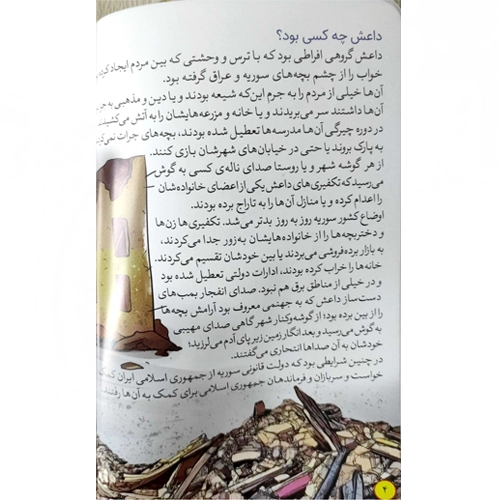 داعش چه کسی بود؟
داعش گروهی افراطی بود که با ترس و وحشتی که بین مردم ایجاد کرده
خواب را از چشم بچه‌های سوریه و عراق گرفته بود.
آن‌ها خیلی از مردم را به جرم این‌که شیعه بودند و یا دین و مذهبی به جز
آن‌ها داشتند سر می‌بریدند و یا خانه و مزرعه‌هایشان را به آتش می‌کشیدند
در دوره چیرگی آن‌ها مدرسه‌ها تعطیل شده بودند، بچه‌های جرات نمی‌کر
به پارک بروند یا حتی در خیابان‌های شهرشان بازی کنند.
از هر گوشه شهر و یا روستا صدای ناله‌ی کسی به گوش
می‌رسید که تکفیری‌های داعش یکی از اعضای خانواده‌شان
را اعدام کرده و یا منازل آن‌ها را به تاراج برده بودند.
اوضاع کشور سوریه روز به روز بدتر می‌شد. تکفیری‌ها زن‌ها
و دختربچه‌ها را از خانواده‌هایشان به‌زور جدا می‌کردند،
به بازار برده‌فروشی می‌بردند یا بین خودشان تقسیم می‌کردند.
خانه‌ها را خراب کرده بودند، ادارات دولتی تعطیل شده بود
و در خیلی از مناطق برق هم نبود. صدای انفجار بمب‌های
دست‌ساز داعش که به جهنمی معروف بود آرامش بچه‌ها
را از بین برده بود؛ از گوشه‌وکنار شهر گاهی صدای مهیبی
به گوش می‌رسید و بعد انگار زمین زیر پای آدم می‌لرزید؛
خودشان به آن صداها انتحاری می‌گفتند.
در چنین شرایطی بود که دولت قانونی سوریه از جمهوری اسلامی ایران کمک
خواست و سربازان و فرماندهان جمهوری اسلامی برای کمک به آن‌ها رفتند
۴